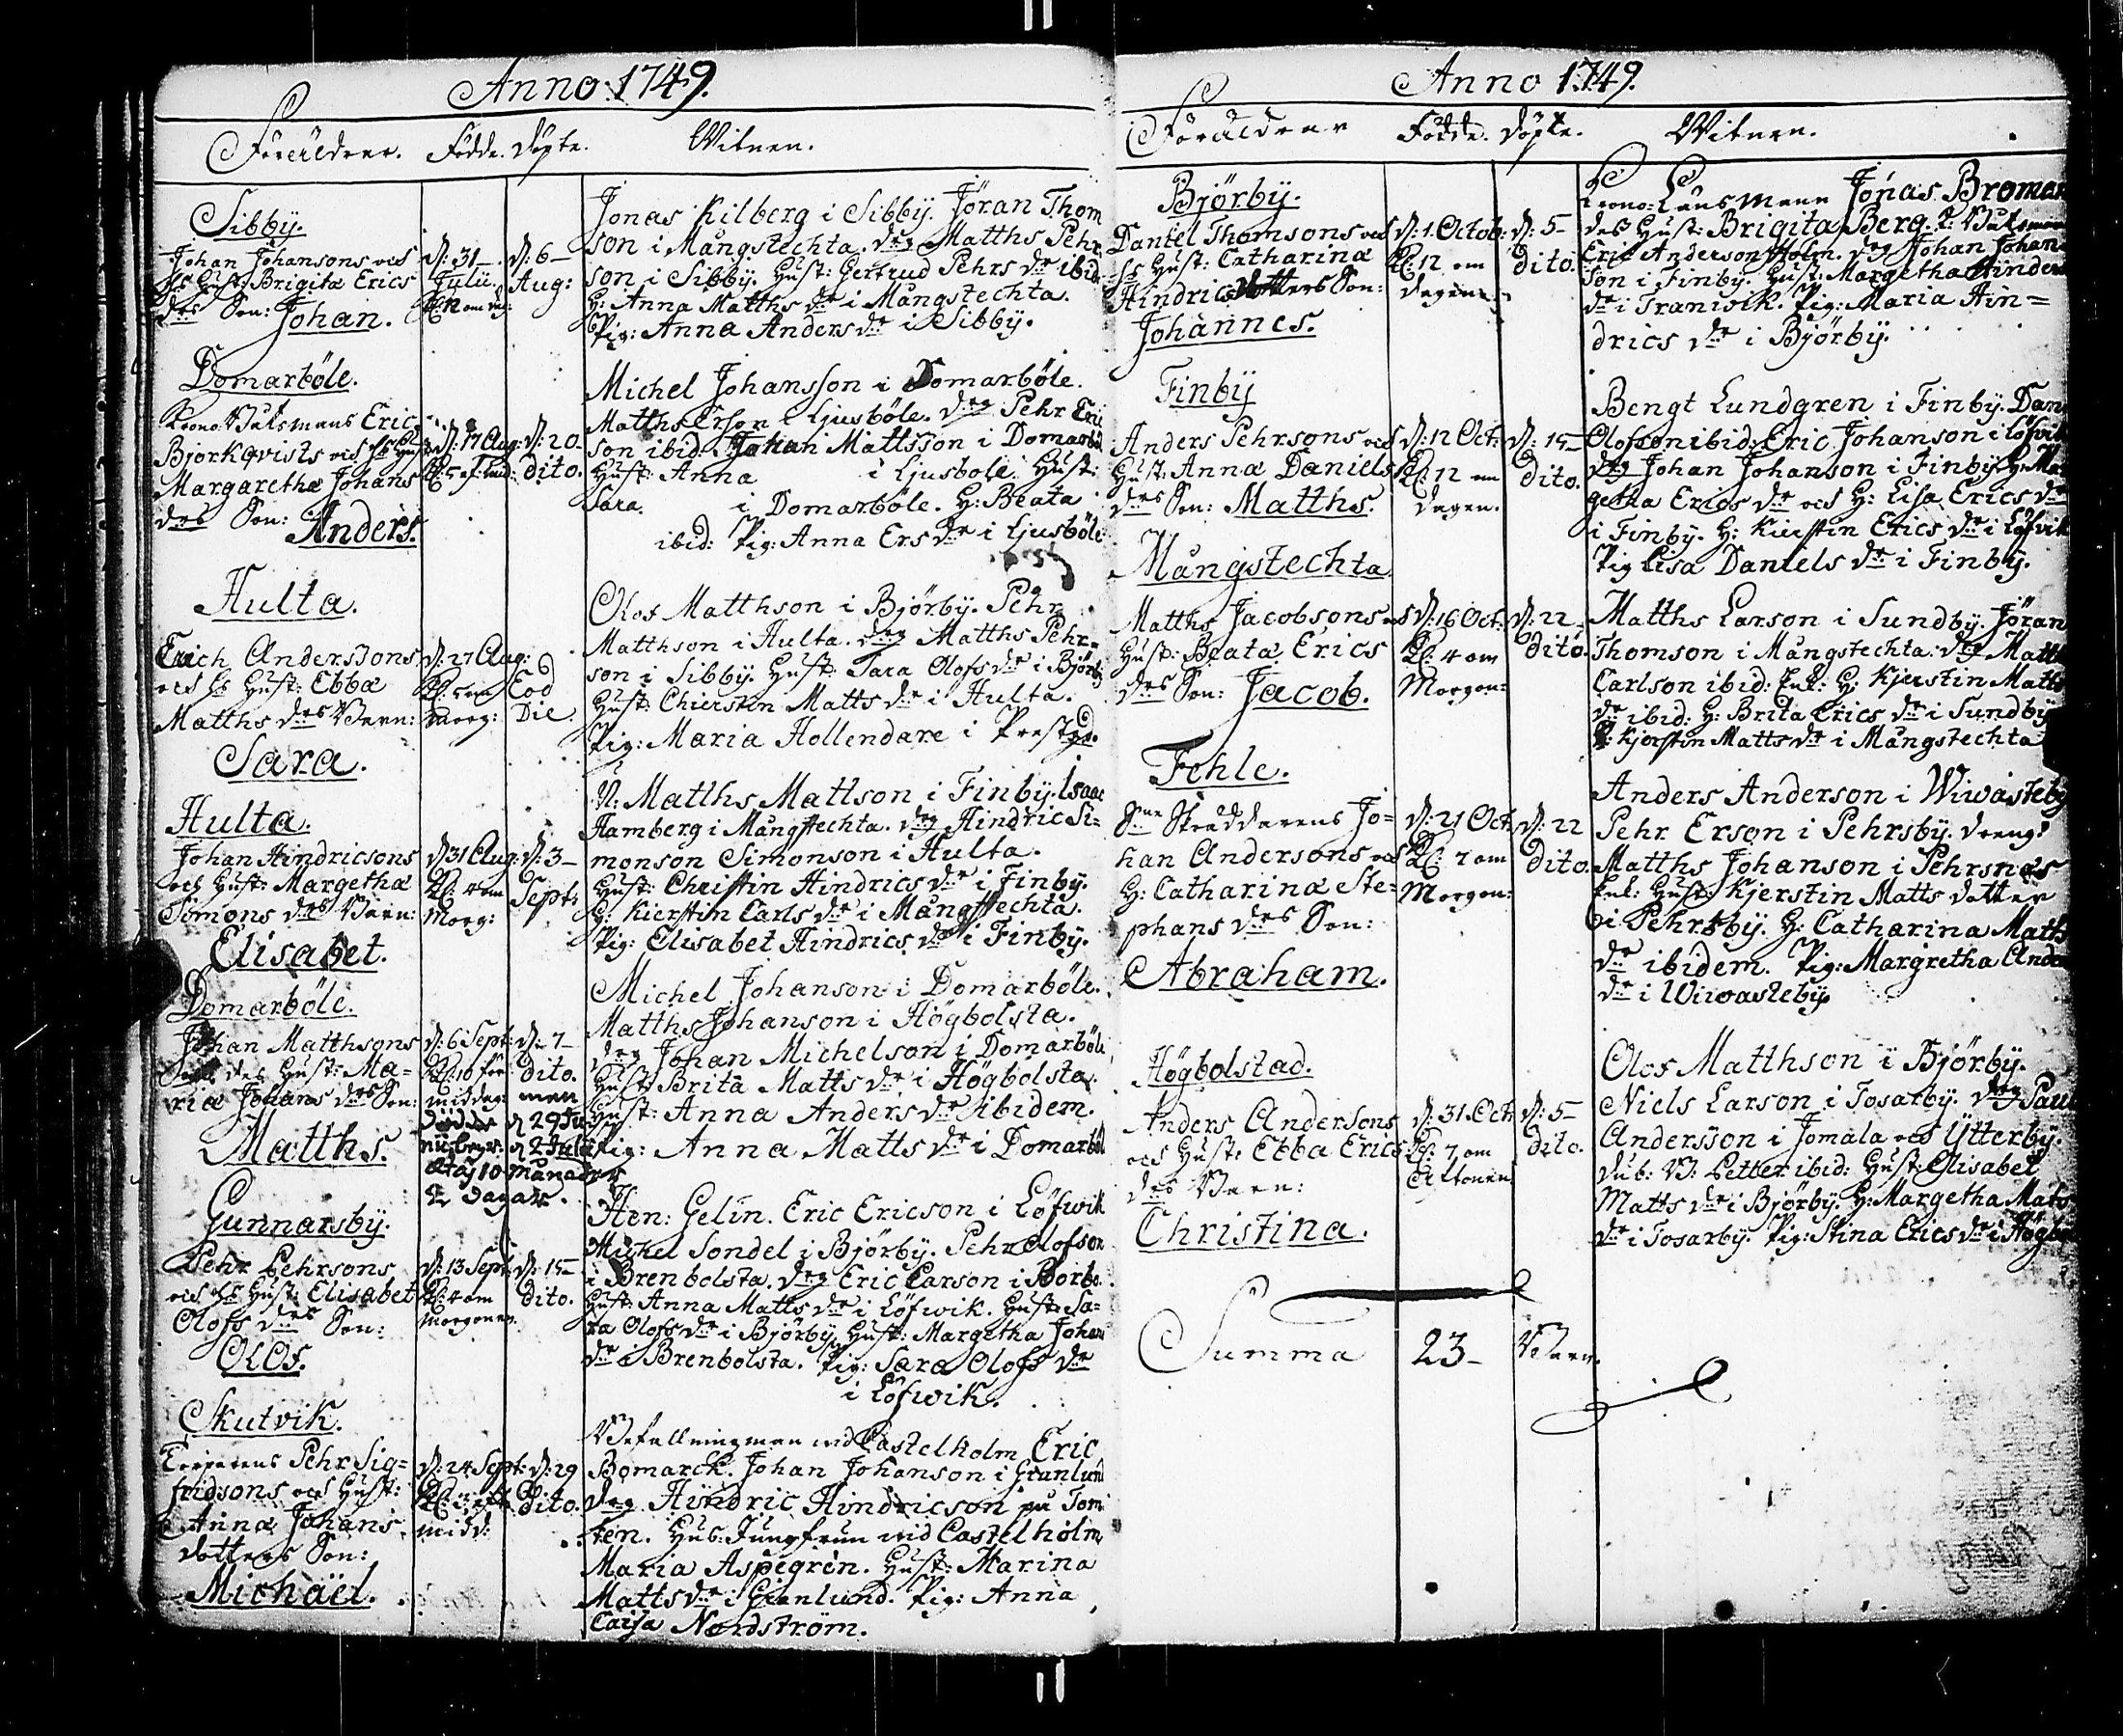 Anno 1749.
Föräldrar. Födde. Döpte. Witnen.
Sibby.
Johan Johansons och
hs Hust: Brigita Erics
drs Son: Johan.
d: 31
Julii.
Kl: 12 om
d: 6
Aug:
Jonas Kilberg i Sibby. Jöran Thom
son i Mångstechta. drg Matths Pehr
son i Sibby. Hust: Gertrud Pehrs dr ibid
H: Anna Matths dr i Mångstechta.
Pig: Anna Anders dr i Sibby.
Domarböle.
Krono Båtsmans Eric
Bjorkqvists och hs Hust
Margaretha Johans
drs Son: Anders.
d: 17 Aug:
d: 20
dito.
Michel Johansson i Domarböle.
Matths Erson i Ljusböle. drg Pehr Eric
son ibid. Johan Mattsson i Domarböl
Hust: Anna i Ljusbole. Hust:
Sara i Domarböle. H: Beata
ibid: Pig: Anna Ers dr i Ljusböle
Hulta.
Erich Anderssons
och hs Hust: Ebba
Matths drs Barn:
Sara.
d: 27 Aug:
Kl: 5 om
Morg:
Eod
Die.
Olof Matthson i Björby. Pehr
Matthson i Hulta. drg Matths Pehr=
son i Sibby. Hust: Sara Olofs dr i Björby
Hust: Chierstin Matts dr i Hulta.
Pig: Maria Hollendare i Prestgd.
Hulta.
Johan Hindricsons
och Hust: Margetha
Simons drs Barn:
Elisabet.
d 31 Aug:
Kl: 4 om
Morg:
d: 3
Sept:
N: Matths Mattson i Finby. Isaac
Hamberg i Mångstechta. drg Hindric Si=
monson Simonson i Hulta.
Hust: Christin Hindrics dr i Finby.
H: Kierstin Carls dr i Mångstechta.
Pig: Elisabet Hindrics dr i Finby.
Domarböle.
Johan Matthsons
des Hust: Ma=
ria Johans drs Son:
Matths.
d: 6 Sept:
Kl: 10 för
middag:
d: 7
dito.
men
dödde d 29 Ju
nii begr: d 2 Julii
ætas 10 månader
dagar.
Michel Johanson i Domarböle.
Matths Johanson i Högbolsta.
drg Johan Michelson i Domarböle
Hust: Brita Matts dr i Högbolsta.
Hust: Anna Anders dr ibidem.
Pig: Anna Matts dr i Domarböl
Gunnarsby.
Pehr Pehrsons
och hs Hust: Elisabet
Olofs drs Son:
Olof.
d: 13 Sept:
Kl: 4 om
Morgonen.
d: 15
dito.
Hen: Gelin. Eric Ericson i Löfwik
Michel Sondel i Björby. Pehr Olofson
i Brenbolsta. drg Eric Larson i
Hust: Anna Matts dr i Löfwik. Hust: Sa=
ra Olofs dr i Björby. Hust: Margetha Johans
dr i Brenbolsta. Pig: Sara Olofs dr
i Löfwik.
Skutvik.
Torparens Pehr Sig=
fridsons och Hust:
Anna Johans
dotters Son:
Michäel.
d: 24 Sept:
midd:
d: 29
dito.
Befallningman wid Castelholm Eric
Bomarck. Johan Johanson i Granlund
drg Hindric Hindricson på Tom
ten. Hus: Jungfrun wid Castelholm
Maria Aspegren. Hust: Marina
Matts dr i Granlund. Pig: Anna
Caisa Nordström.
Anno 1749.
Föräldrar Födde. Döpte. Witnen.
Björby.
Daniel Thomsons och
hs Hust: Catharina
Hindrics dotters Son:
Johannes.
d: 1. Octob:
Kl: 12 om
dagen.
d: 5
dito.
Krono: Länsmann Jonas Broman
des Hust: Brigita Berg. Båtsman
Eric Anderson Holm. drg Johan Johan
son i Finby. Hust: Margetha Hinders
dr i Tranwik. Pig: Maria Hin=
drics dr i Björby.
Finby
Anders Pehrsons och
Hust: Anna Daniels
drs Son: Matths.
d: 12 Oct:
Kl: 12 om
dagen.
d: 15
dito.
Bengt Lundgren i Finby. Dan
Olofson ibid: Eric Johanson i Löfvik
drg Johan Johanson i Finby. H: Mar
getha Erics dr och H: Lisa Erics dr
i Finby. H: Kierstin Erics dr i Löfvik
Pig Lisa Daniels dr i Finby.
Mångstechta
Matths Jacobsons och
Hust: Beata Erics
drs Son: Jacob.
d: 16 Oct:
Kl: 4 om
Morgon:
d: 22
dito.
Matths Larson i Sundby. Jöran
Thomson i Mångstechta. drg Matth
Carlson ibid: Enk: H: Kjerstin Matts
dr ibid: H: Brita Erics dr i Sundby
P: Kjerstin Matts dr i Mångstechta
Fehle.
Sne Skräddarens Jo=
han Andersons och
H: Catharina Ste=
phans drs Son:
Abraham.
d: 21 Oct:
Kl: 7 om
Morgon:
d: 22
dito.
Anders Anderson i Wiwasteby
Pehr Erson i Pehrsby. dreng:
Matths Johanson i Pehrsnäs
Enk: Hust: Kjerstin Matts dotter
i Pehrsby. H: Catharina Matts
dr ibidem. Pig: Margretha Ander
dr i Wiwasteby.
Högbolstad.
Anders Andersons
och Hust: Ebba Erics
drs Barn:
Christina.
d: 31 Oct:
Kl: 7 om
Aftonen
d: 5
dito.
Olof Matthson i Björby.
Niels Larson i Tosarby. drg Paul
Andersson i Jomala och Ytterby.
Petter ibid: Hust: Elisabet
Matts dr i Björby. H: Margetha Matts
dr i Tosarby. Pig: Stina Erics dr i Högbo
Summa 23 Barn.